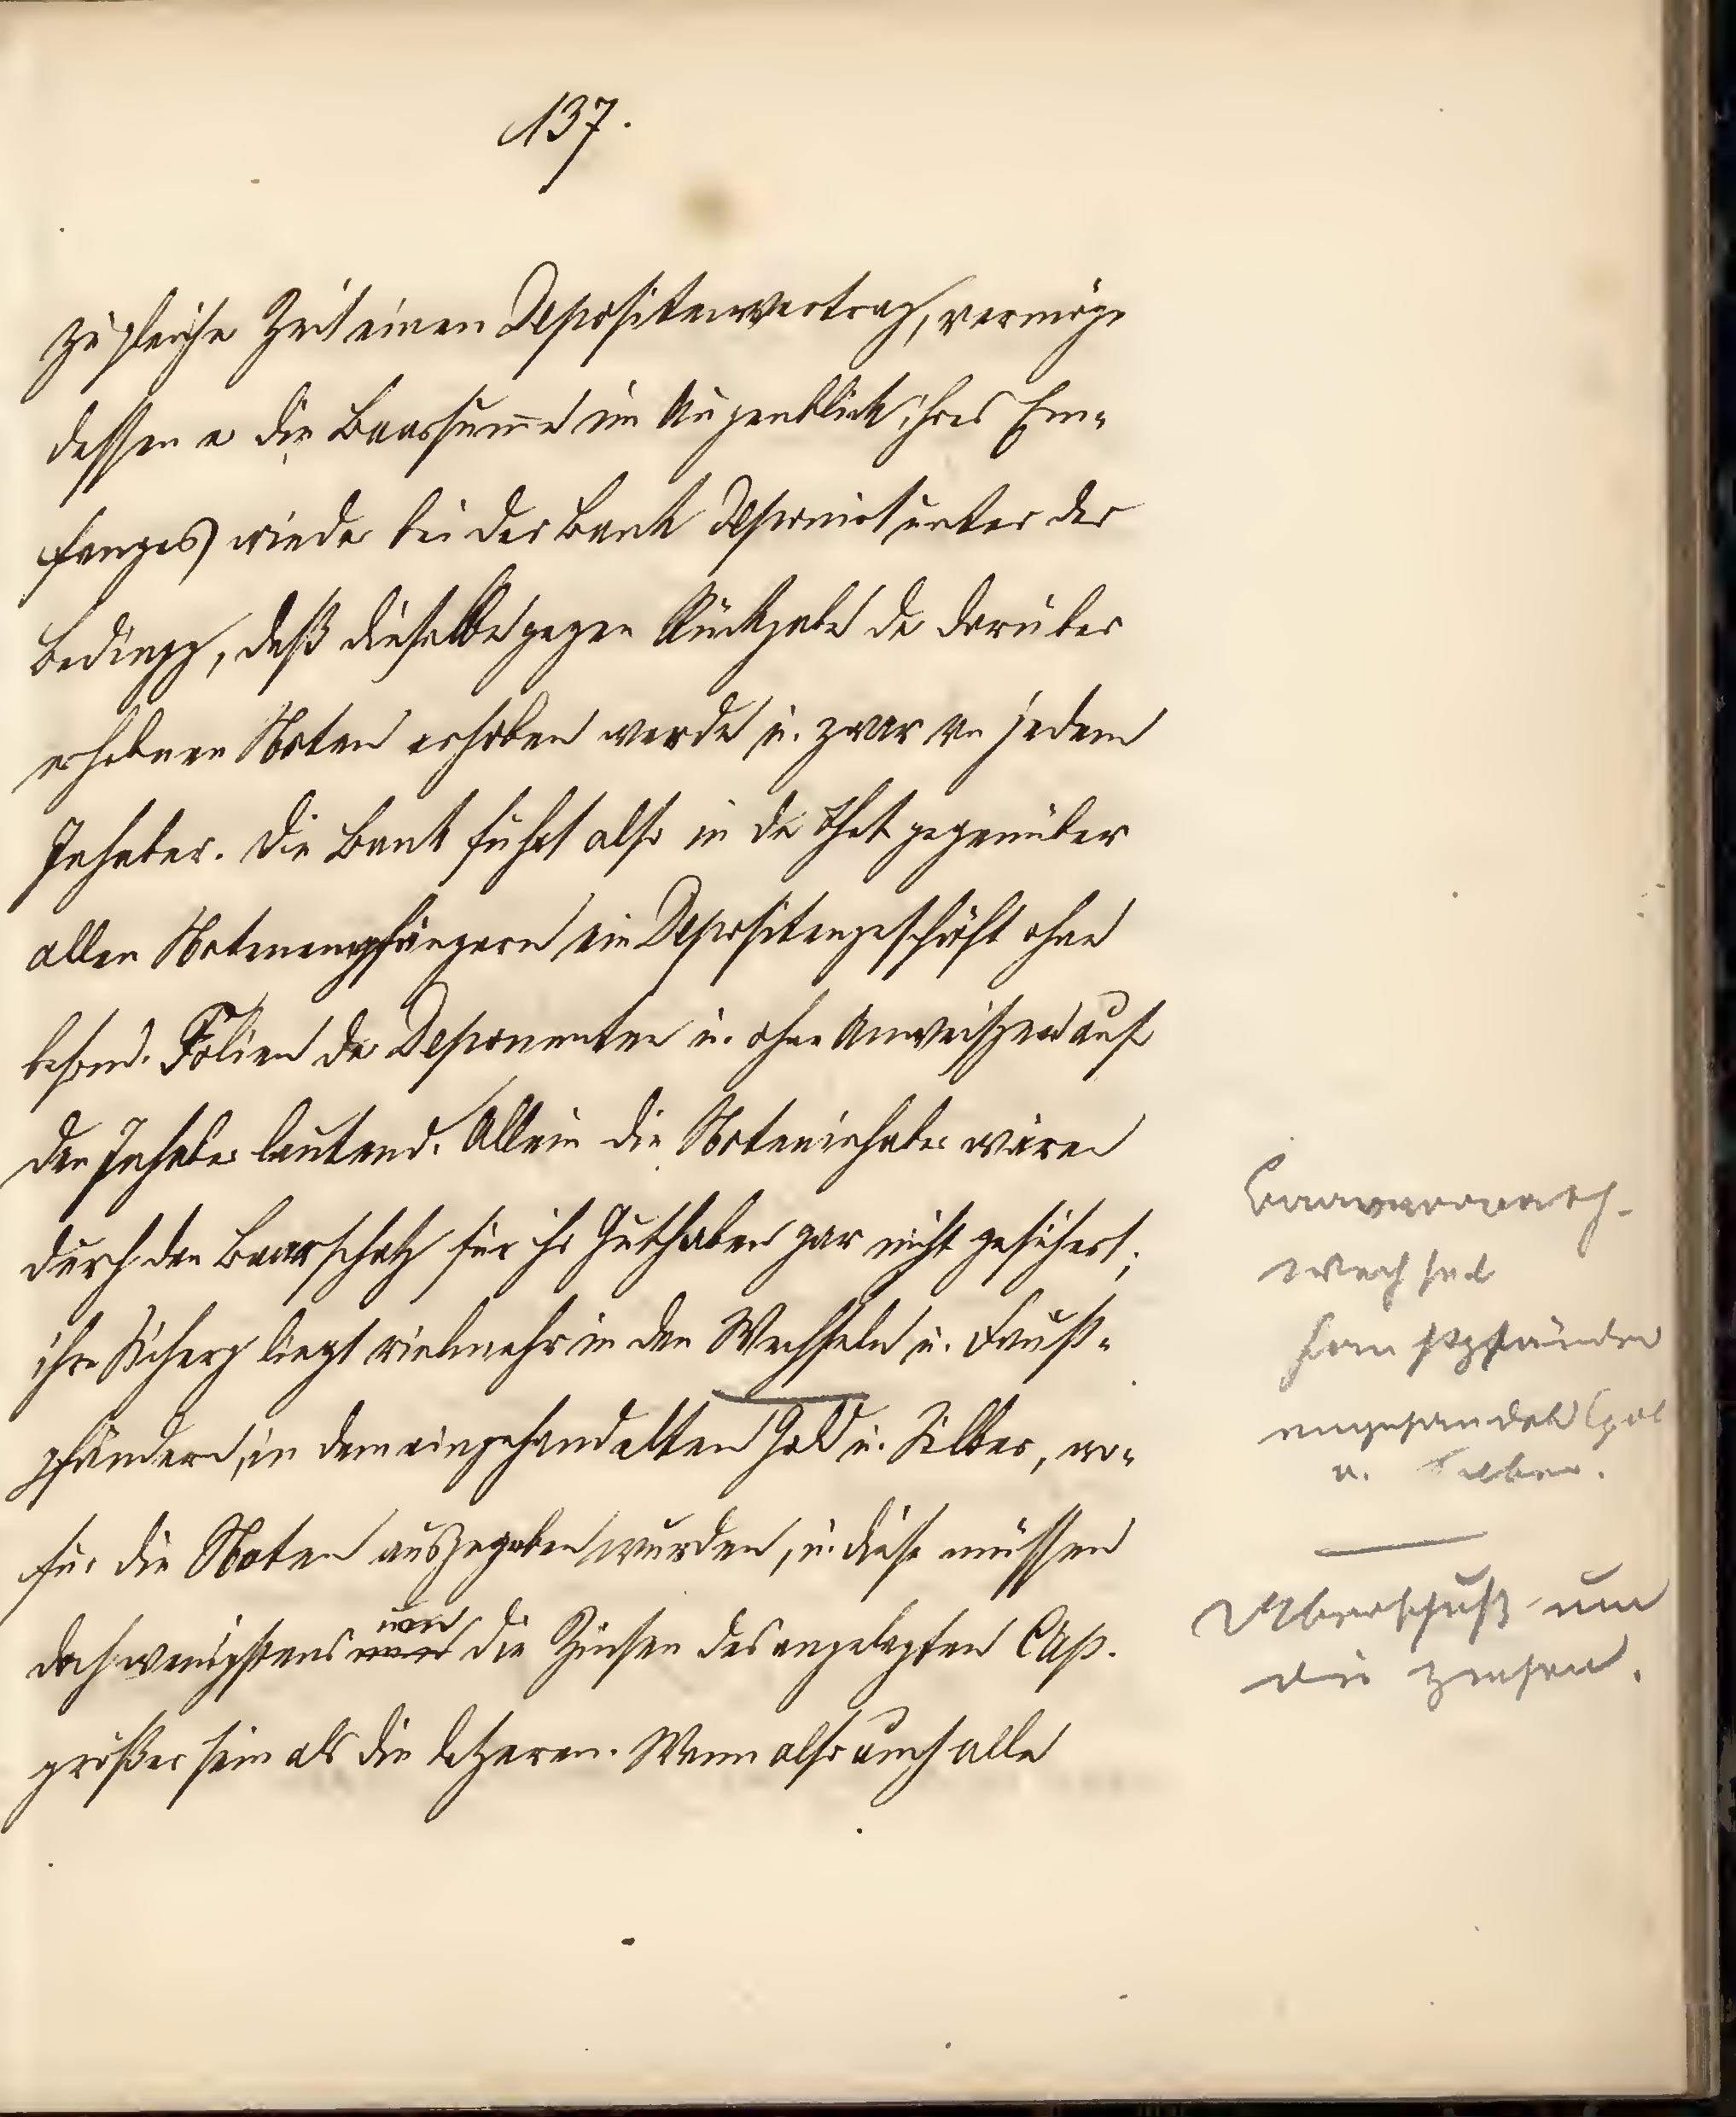 137.
zu gleicher Zeit einen Depositenvertrag, vermöge
dessen er die Baarsum̅e im Augenblick ihres Em-
fanges wieder bei der Bank deponirt unter der
Bedingg, daß dieselbe gegen Rückgabe der darüber
erhobenen Noten erhoben werde u. zwar von jedem
Inhaber. Die Bank führt also in der That gegenüber
allen Notenempfängern ein Depositengeschäft ohne
besond. Folien der Deponenten u. ohne Anweisgen auf
den Inhaber lautend. Allein die Noteninhaber wären
durch den Baarschatz für ihr Guthaben gar nicht gesichert;
ihre Sicherg liegt vielmehr in den Wechseln u. Faust-
pfändern, in dem eingehandelten Gold u. Silber, wo-
für die Noten ausgegeben wurden, u. diese müssen
doch wenigstens um die Zinsen des angelegten Cap.
größer sein als die letzeren. Wenn also auch alle
Baarvorrath.
Wechsel
Faustpfänder
eingehandelt Gol
u. Silber.
Überschuß um
die Zinsen.